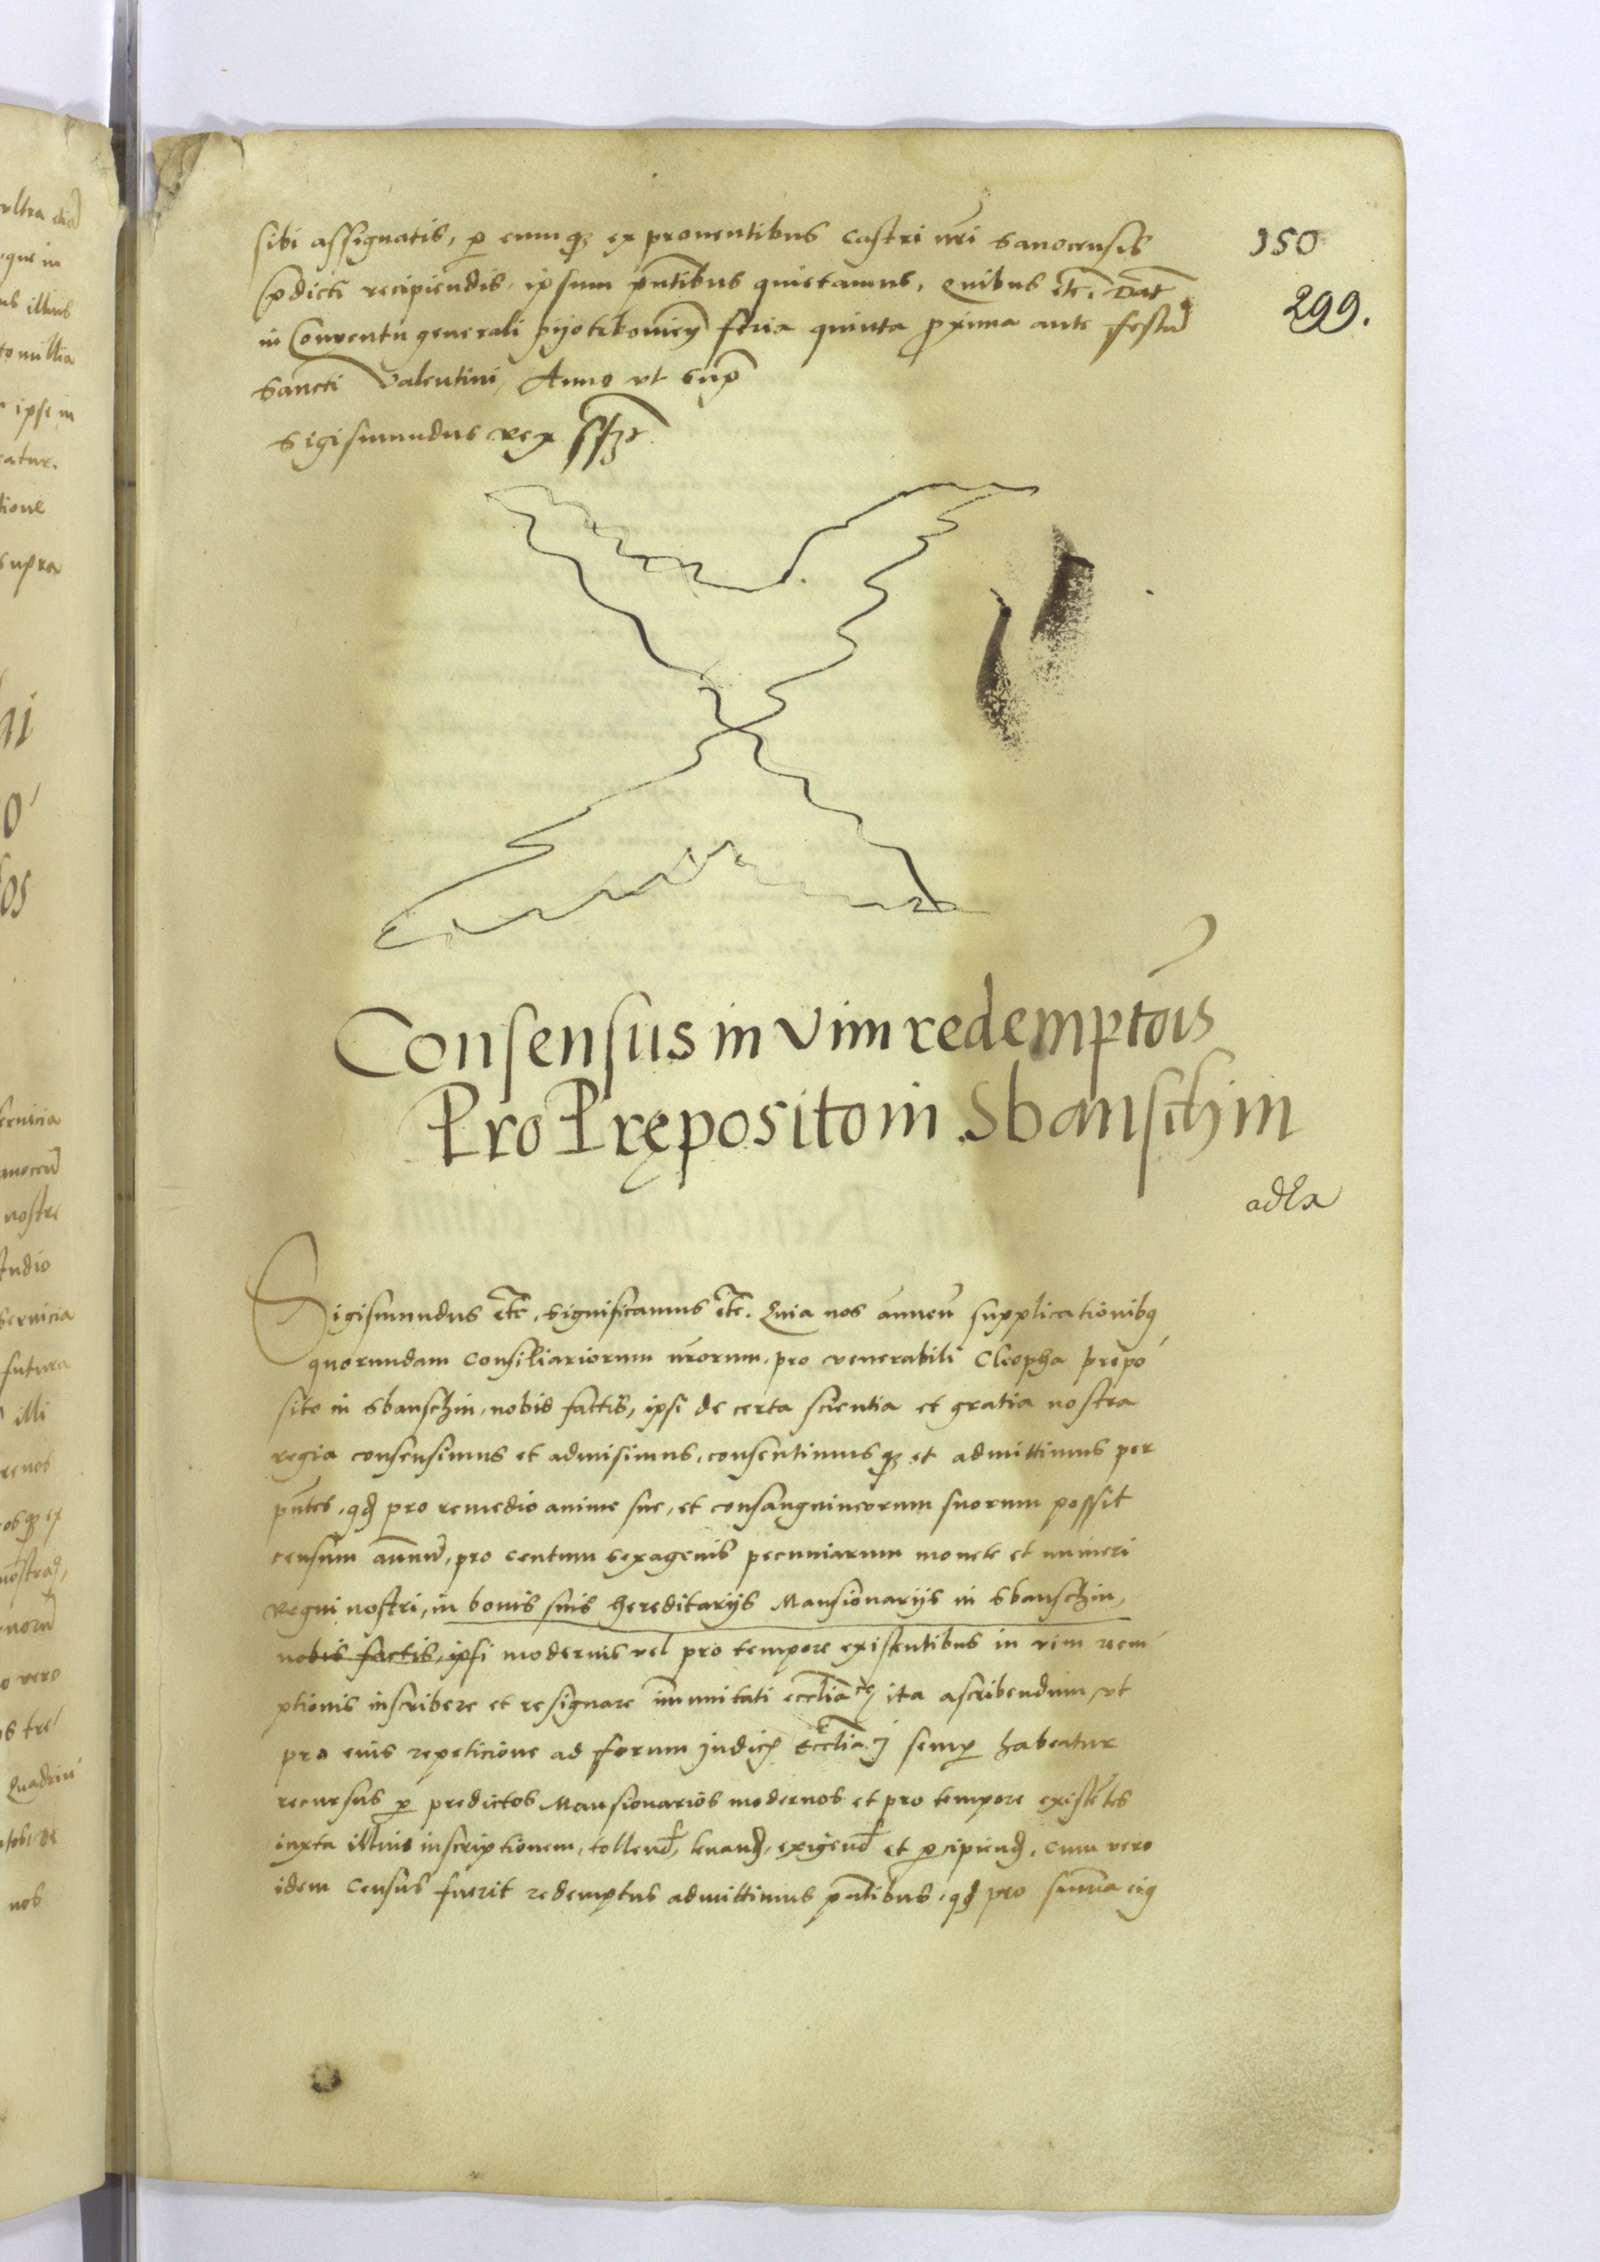 sibi assignatis, p eumq3 ex proventibus castri nri Sanocensis
pdicti recipiendis, ipsum pntibus quietamus, Quibus etc. Dat
in Conventu generali pijotrkovien feria quinta proxima ante festu
Sancti Valentini, Anno ut supra
Sigismundus rex sszt
150
299.
Consensus in vim redemptois
Pro Pręposito in Sbanschin
ad Ex
Sigismundus etc, Significamus etc. Quia nos annuen supplicationibq
quorundam Consiliariorum nrorum, pro venerabili Cleopha prepo
sito in Sbanschin, nobis factis, ipsi de certa scientia et gratia nostra
regia consensimus et admisimus, consentimusq3 et admittimus per
pntes, qd pro remedio anime sue, et consanguineorum suorum possit
censum annuu, pro centum sexagenis pecuniarum monete et numeri
Regni nostri, in bonis suis hereditarijs Mansionarijs in Sbanschin,
nobis factis, ipsi modernis vel pro tempore existentibus in vim reem
ptionis inscribere et resignare immunitati ecclia ita ascribendum, ut
pro eius repeticione ad forum judicij Ecclia semp habeatur
recursus p predictos Mansionarios modernos et pro tempore existetes
iuxta illius inscriptionem, tollend, levand, exigend et pcipiend, cum vero
idem Census fuerit redemptus admittimus pntibus, qd pro summa eiq